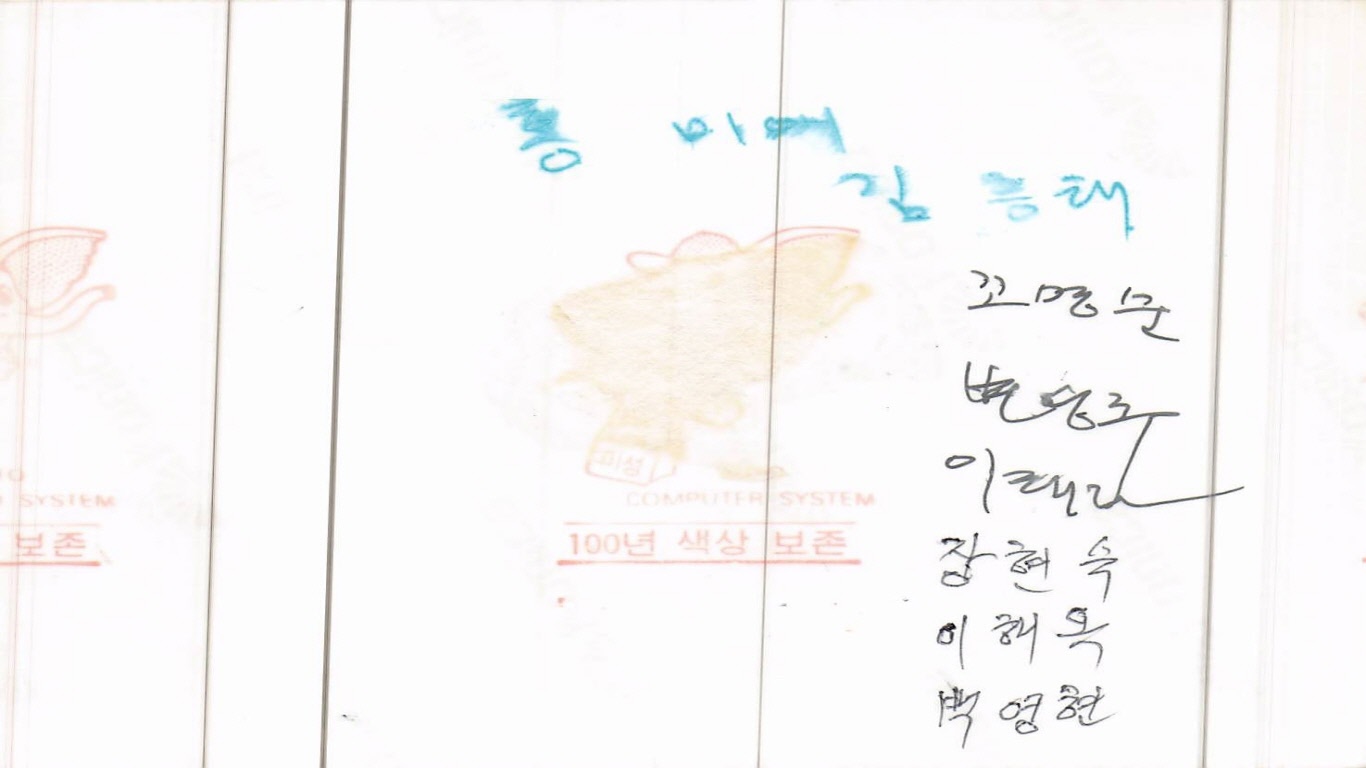 홍 미애
김 흥태
고명순
이태리
장현숙
이해옥
박영현
미성
COMPUTER SYSTEM
SYSTEM
100년 색상 보존
보존